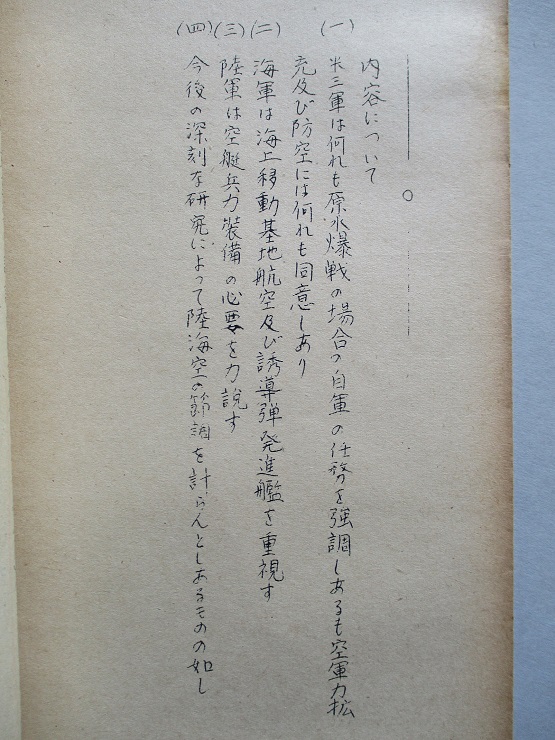 内容について
(一) 米三軍は何れも原水爆戦の場合の自軍の任務を強調しあるも空軍力拡
充及び防空には何れも同意しあり
(二) 海軍は海上移動基地航空及び誘導弾発進艦を重視す
(三) 陸軍は空艇兵力装備の必要を力説す
(四) 今後の深刻な研究によって陸海空の節調を計らんとしあるものの如し